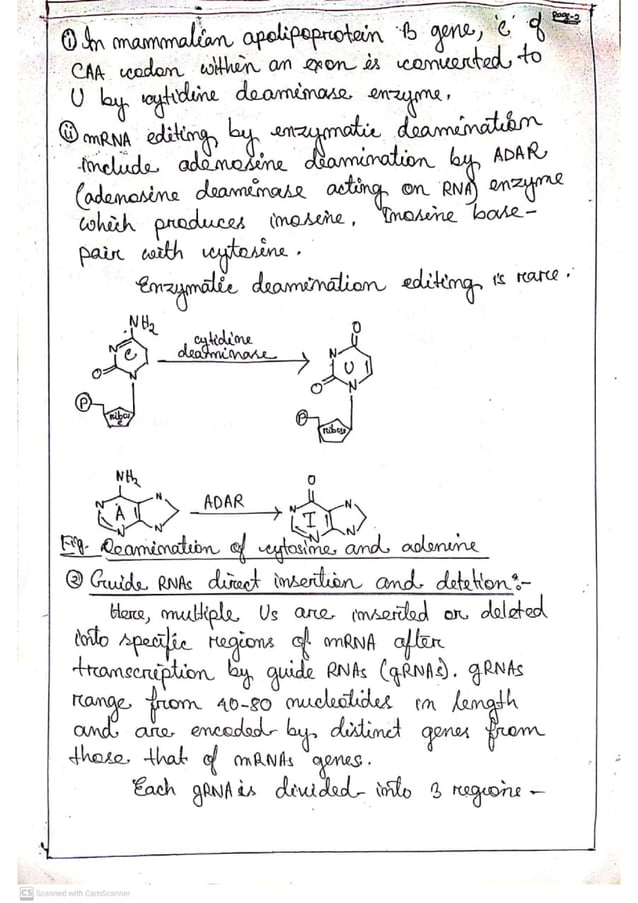 Page-2
① In mammalian apolipoprotein B gene, 'c' of
CAA codon within an exon is converted to
U by cytidine deaminase enzyme.
⑪ mRNA editing by enzymatic deamination
include adenosine deamination by ADAR
(adenosine deaminase acting on RNA) enzyme
which produces inosine. Inosine base-
pair with cytosine.
Enzymatic deamination editing is rare.
NH₂
N
C
O
N
P
ribose
cytidine
deaminase
O
N
U
O
N
P
ribose
NH₂
N
N
A
N
N
ADAR
O
N
N
I
N
N
Fig- Deamination of cytosine and adenine
② Guide RNAs direct insertion and deletion:-
Here, multiple Us are inserted or deleted
into specific regions of mRNA after
transcription by guide RNAs (gRNAs). gRNAs
range from 40-80 nucleotides in length
and are encoded by distinct genes from
those that of mRNAs genes.
Each gRNA is divided into 3 regions -
CS Scanned with CamScanner